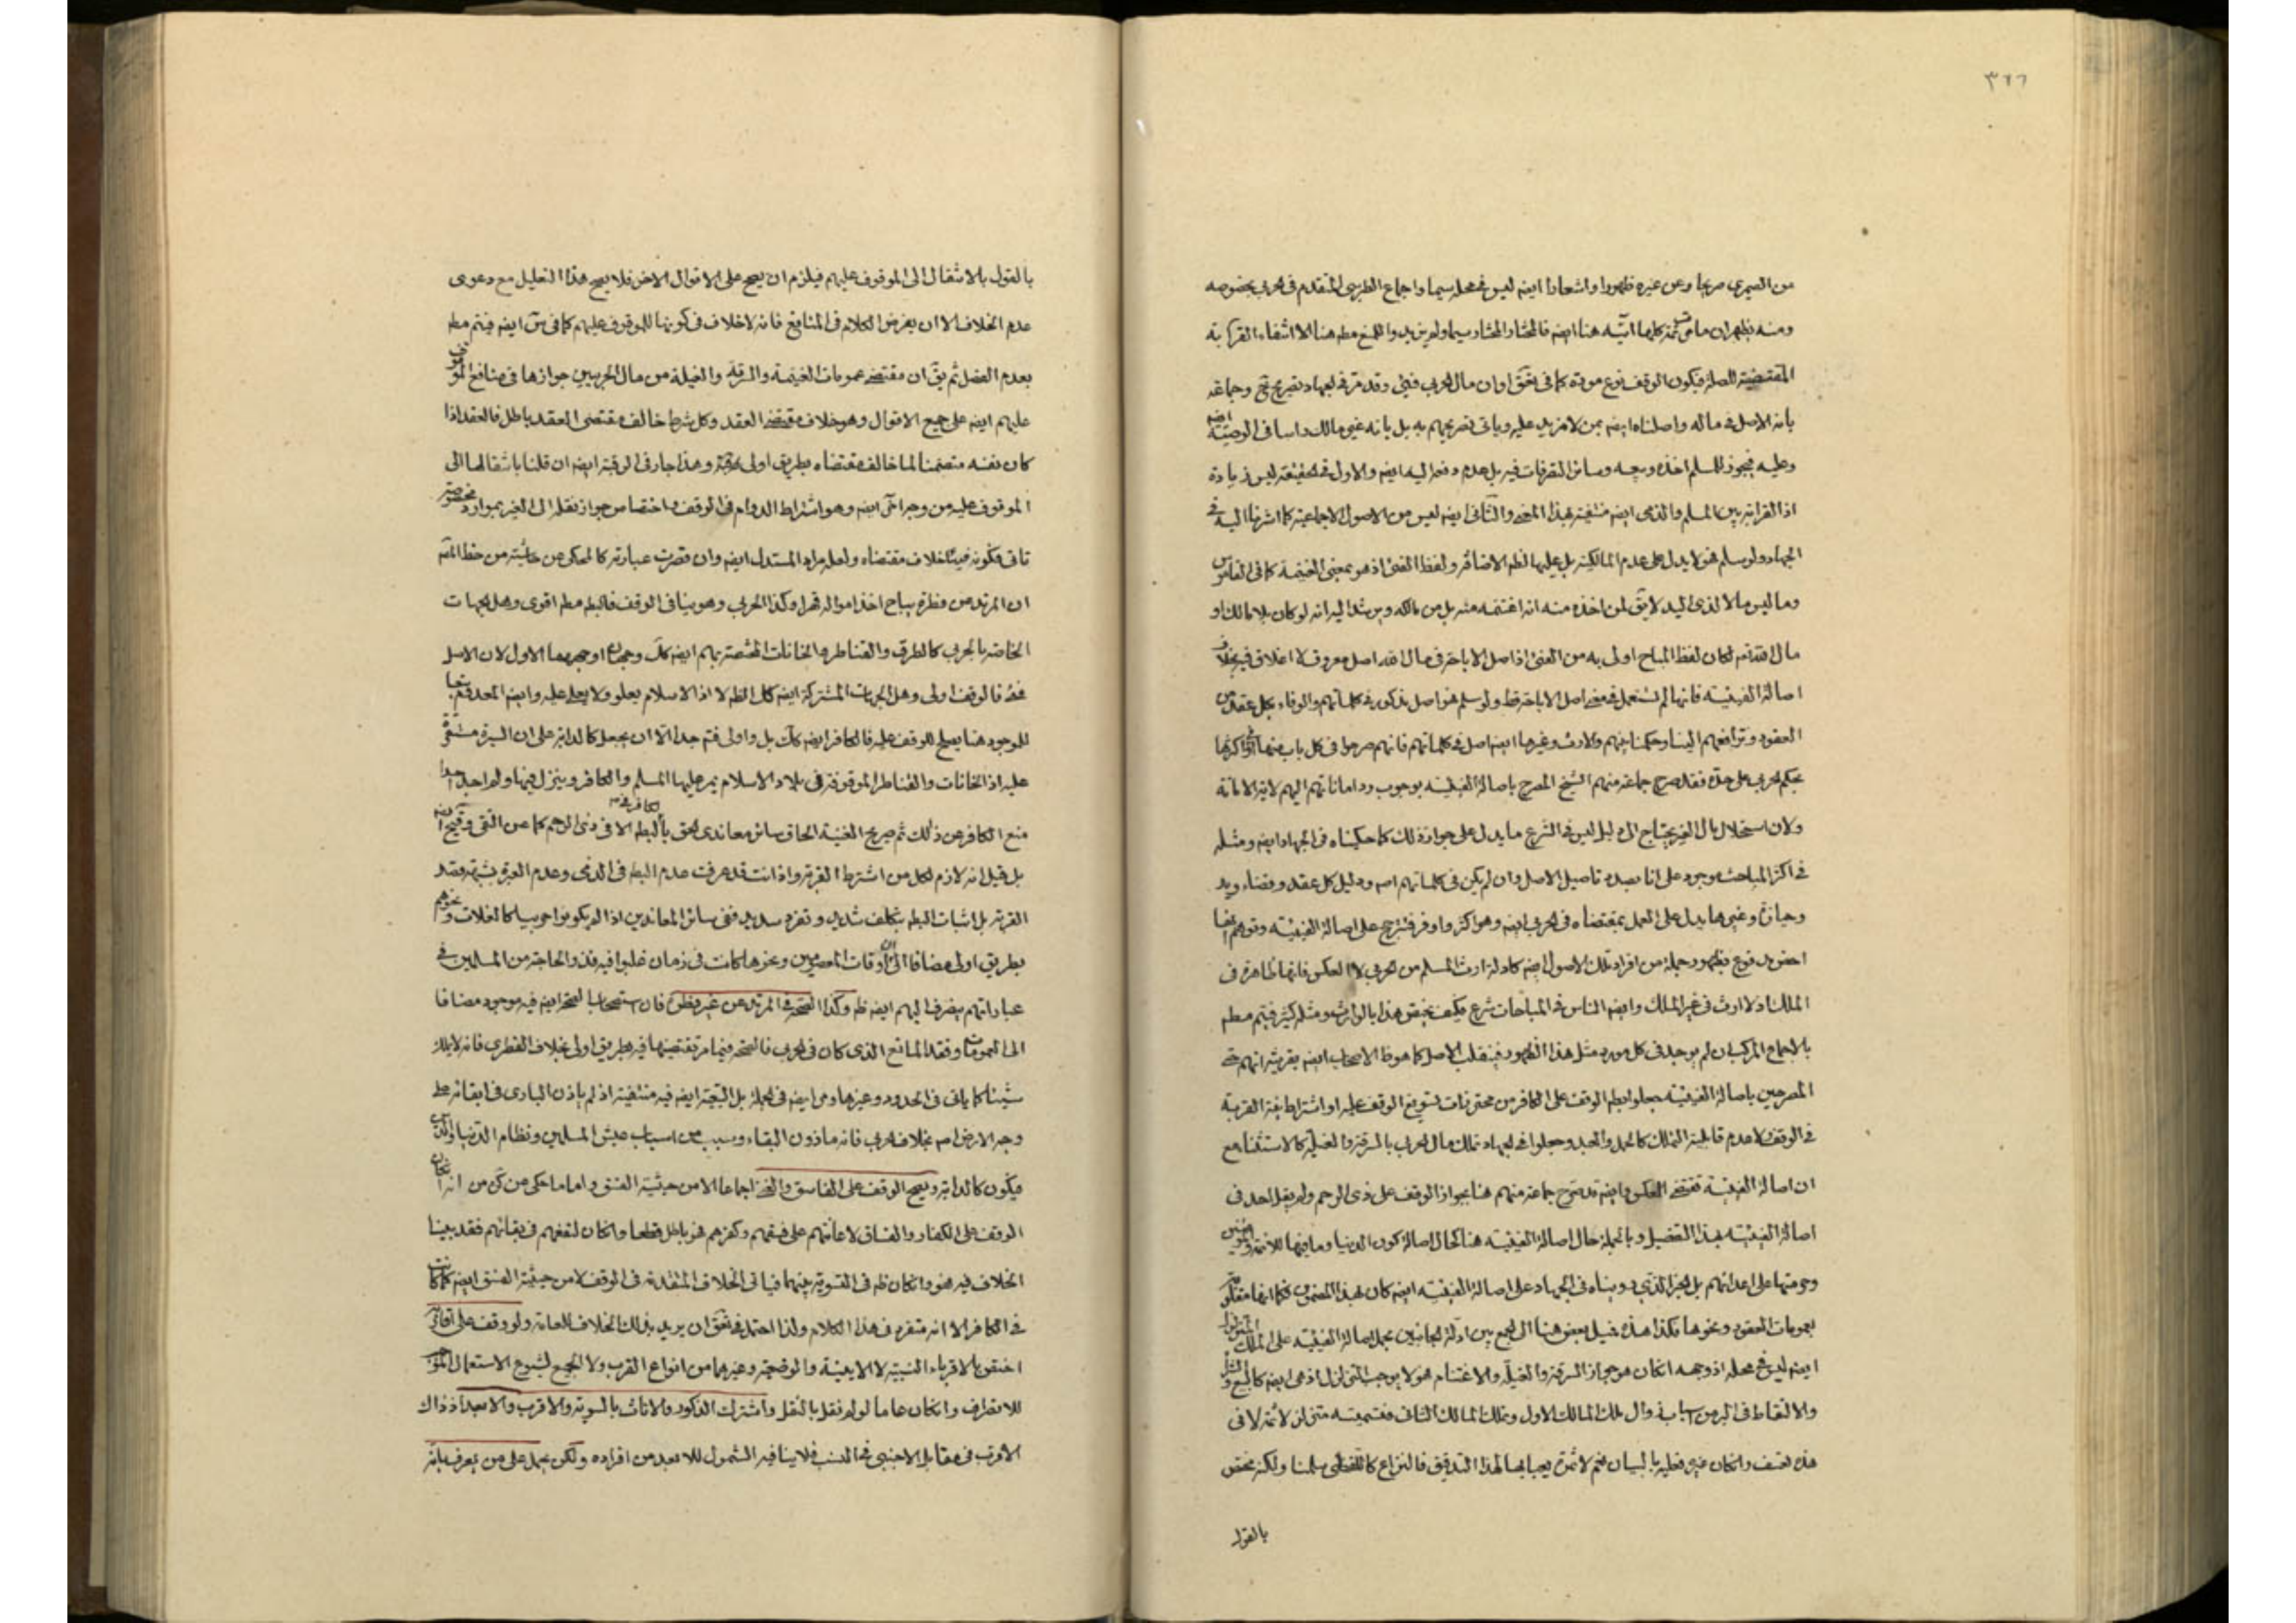 ٣٦٦
من الصيمري صريحا وعن غيره ظهورا واشعارا ايضه ليس في محله سيما واجماع الطبرسي المتقدم في الحربي بخصوصه
ومنه يظهر ان ما في كلها آتية هنا ايضه فالمختار المختار سيما ولم يزيدوا للمنع مطه هنا الا انتفاء القرابة
المقتضية للصلة فيكون الوقف نوع مودة كما في وان مال الحربي فيئ وقد مر في الجهاد تصريح وجماعة
بانه الاصل في ماله واصلناه ايضه بمن لا مزيد عليه وياتي تصريحهم به بل بانه غير مالك راسا في الوصية ايضه
وعليه فيجوز للمسلم اخذه وبيعه وسائر التصرفات فيه بل عدم دفعه اليه ايضه والاول في الحقيقة ليس زيادة
اذ القرابة بين المسلم والذمي ايضه منتفية بهذا المعنى والثاني ايضه ليس من الاصول الاجماعية كما اشرنا اليه في
الجهاد ولو سلم فهو لا يدل على عدم المالكية بل عليها لظه الاضافة ولفظ الفئ اذ هو بمعنى الغنيمة كما في القاموس
وما ليس مالا لذي اليد لا يق لمن اخذه منه انه اغتنمه منه بل من مالكه ويرشد اليه انه لو كان بلا مالك او
مال الله تعه لكان لفظ المباح اولى به من الفئ اذ اصل الاباحة في مال الله اصل معروف لا اغلاق فيه بخلاف
اصالة الفيئية فانها لم تستعمل في معنى اصل الاباحة قط ولو سلم فهو اصل مذكور في كلماتهم والوفاء بكل عقد من
العقود وترافعهم الينا وحكمنا بينهم والارث وغيرها ايضه اصل في كلماتهم فانهم صرحوا في كل باب منها او اكثرها
بحكم الحربي على حدة فقد صرح جماعة منهم الشيخ المصرح باصالة الفيئية بوجوب رد اماناتهم اليهم لاية الامانة
ولان استحلال مال الغير يحتاج الى دليل ليس في الشرع ما يدل على جواز ذلك كما حكيناه في الجهاد ايضه ومثله
في اكثر المباحث موجود على انا بصدد تاصيل الاصل وان لم يكن في كلماتهم اصه ودليل كل عقد وقضاء ويد
وحيازة وغيرها يدل على العمل بمقتضاه في الحربي ايضه وهو اكثر واوفر فترجح على اصالة الفيئية وتوهم انها
اخص مدفوع بظهور جملة من افراد تلك الاصول ايضه كادلة ارث المسلم من الحربي لا العكس فانها ظاهرة في
الملك اذ لا ارث في غير الملك وايضه الناس في المباحات شرع فكيف يختص هذا بالوارث ومثله كثير فيتم مطه
بالاجماع المركب ان لم يوجد في كل مورد مثل هذا الظهور فينقلب الاصل كما هو ظه الاصحاب ايضه بقرينة انهم حتى
المصرحين باصالة الفيئية جعلوا بطه الوقف على الكافر من محترزات تسويغ الوقف عليه او اشتراط نية القربة
في الوقف لا عدم قابلية التملك كالحمل والعبد وجعلوا في الجهاد تملك مال الحربي بالسرقة والغيلة كالاستثناء مع
ان اصالة الفيئية تقتضي العكس وايضه قد صرح جماعة منهم هنا بجواز الوقف على ذي الرحم ولم يقل احد في
اصالة الفيئية بهذا التفصيل وبالجملة حال اصالة الفيئية هنا كحال اصالة كون الدنيا وما فيها للائمة
وحرمتها على اعدائهم بل الخبر الذي رويناه في الجهاد على اصالة الفيئية ايضه كان بهذا المضمون فكما انها
بعمومات العقود ونحوها فكذا هذه فميل بعض هنا الى الجمع بين ادلة الجانبين بحمل اصالة الفيئية على الملك المتزلزل
ايضه ليس في محله اذ وجهه ان كان هو جواز السرقة والغيلة والاغتنام فهو لا يوجب التزلزل اذ هي ايضه كالبيع
والالتقاط في البر من اسباب زوال ملك المالك الاول وتملك المالك الثاني فتسميته متزلزلا
هذه تعسف وان كان غير فعليه بالبيان نعم لا ثمرة يعبا بها لهذا التدقيق فالنزاع كاللفظي سلمنا ولكنه مختص
بالقول
بالقول بالانتقال الى الموقوف عليهم فيلزم ان يصح على الاقوال الاخر فلا يصح هذا التعليل مع دعوى
عدم الخلاف الا ان يفرض الكلام في المنافع فانه لا خلاف في كونها للموقوف عليهم كما في ايضه فيتم مطه
بعدم الفصل ثم يق ان مقتضى عمومات الغنيمة والسرقة والغيلة من مال الحربيين جوازها في منافع الموقوف
عليهم ايضه على جميع الاقوال وهو خلاف مقتضى العقد وكل شرط خالف مقتضى العقد باطل فالعقد اذا
كان بنفسه متضمنا لما خالف مقتضاه بطريق اولى وهذا جار في الرقبة ايضه ان قلنا بانتقالها الى
الموقوف عليه من وجه اخر ايضه وهو اشتراط الدوام في الوقف واختصاص جواز نقله الى الغير بموارد مخصوصة
تاتي فكونه فيئا خلاف مقتضاه ولعله مراد المستدل ايضه وان قصرت عبارته كالمحكي عن حاشية من خط المص
ان المرتد عن فطرة يباح اخذ امواله قهرا وكذا الحربي وهو ينافي الوقف فالبطه مطه اقوى وهل الجهات
الخاصة بالحربي كالطرق والقناطر والخانات المختصة بهم ايضه كك وجهان اوجههما الاول لان الاصل
فئ فالوقف اولى وهل الجهات المشتركة ايضه كك الظه لا اذ الاسلام يعلو ولا يعلى عليه وايضه المعدوم تبعا
للموجود هنا يصلح للوقف عليه فالكافر ايضه كك بل واولى فتم جدا الا ان يجعل كالدابة على ان السيرة مستقرة
عليه اذ الخانات والقناطر الموقوفة في بلاد الاسلام يمر عليها المسلم والكافر وينزل فيها ولم اجد احدا
منع الكافر عن ذلك ثم صريح الغنية الحاق سائر معاندي الحق بالكافر في البطه الا في ذي الرحم كما عن التقي ايضه
بل قيل انه لازم لكل من اشترط القربة واذ انت قد عرفت عدم البطه في الذمي وعدم العبرة بشبهة قصد
القربة بل اثبات البطه بتكلف شديد وتفرد سديد ففي سائر المعاندين اذا لم يكونوا حربيا كالغلات ونحوهم
بطريق اولى مضافا الى ان اوقات المعصومين ونحوها كانت في زمان غلبوا فيه فذو الحاجة من المسلمين في
عباداتهم يصرف اليهم ايضه ظه وكذا الصحة في المرتد عن غير فطرة فان استصحاب الصحة ايضه فيه موجود مضافا
الى العمومات وفقد المانع الذي كان في الحربي فالصحة فيما مر تقتضيها فيه بطريق اولى بخلاف الفطري فانه لا يملك
شيئا كما ياتي في الحدود وغيرها ومر ايضه في الجملة بل التبعية ايضه فيه منتفية اذ لم ياذن الباري في ابقائه على
وجه الارض اصه بخلاف الحربي فانه ماذون البقاء وسبب من اسباب عيش المسلمين ونظام الدنيا والدين
فيكون كالدابة ويصح الوقف على الفاسق والغني اجماعا الا من حيثية الفسق واما ما حكي عن من انه
الوقف على الكفار والفساق لاعانتهم على فسقهم وكفرهم فهو باطل قطعا وان كان لنفعهم في بقائهم فقد بينا
الخلاف فيه فهو وان كان ظه في التسوية بينهما فياتي الخلاف المتقدمة في الوقف لا من حيثية الفسق ايضه كما كانت
في الكافر الا انه متفرد في هذا الكلام ولذا احتمل في ان يريد بذلك الخلاف للعامة ولو وقف على اقاربه
اختص بالاقرباء النسبية لا الايمنية والوضعية وغيرهما من انواع القرب ولا الجميع لشيوع الاستعمال
للانصراف وان كان عاما لو لم نقل بالنقل واشترك الذكور والاناث بالسوية والاقرب والابعد اذ ذاك
الاقرب في مقابل الاجنبي في النسب فلا ينافيه الشمول للابعد من افراده ولكن يحمل على من يعرف بانه